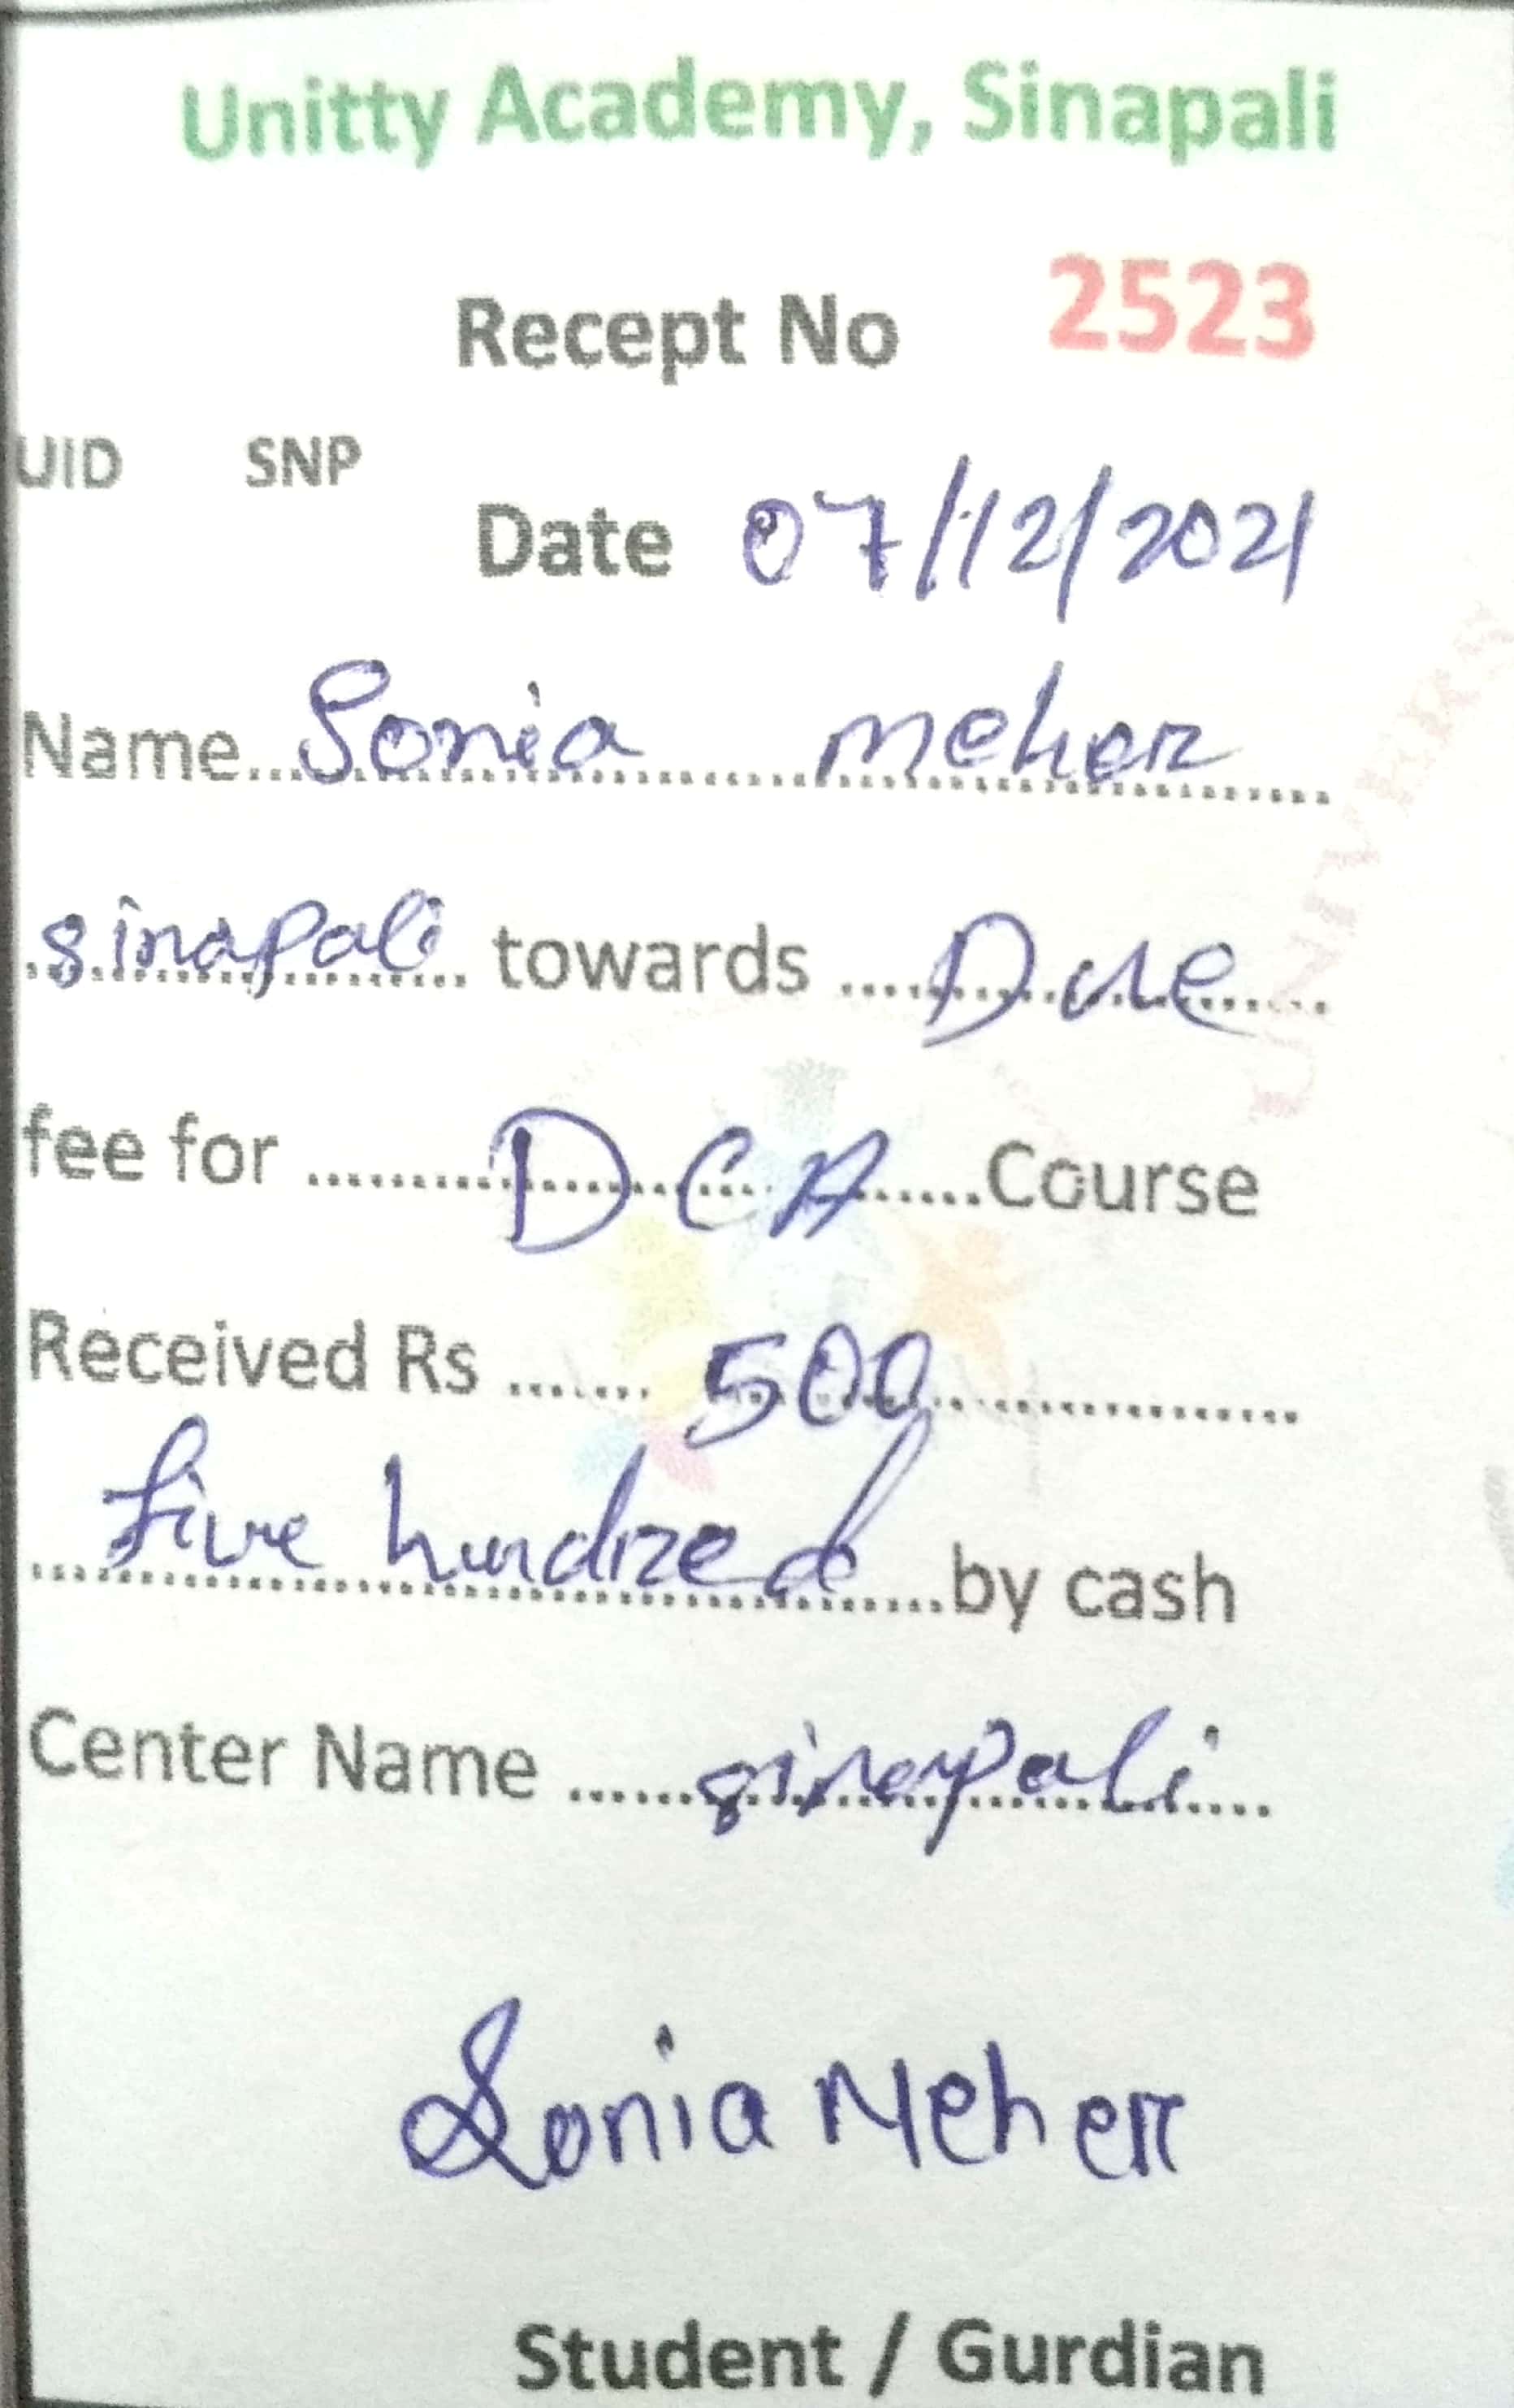 Unitty Academy, Sinapali
Recept No 2523
UID SNP
Date 07/12/2021
Name Sonia meher
sinapali towards Due
fee for DCA Course
Received Rs 500
five hundred by cash
Center Name sinapali
Sonia Meher
Student / Gurdian